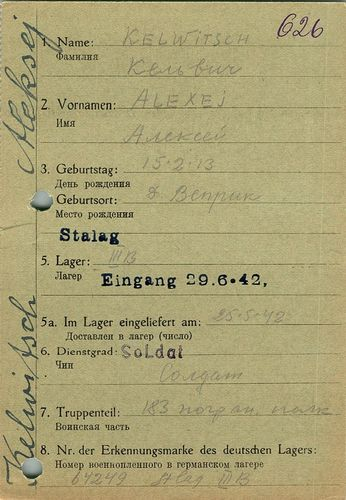 626
1. Name: KELWITSCH
Фамилия
Кельвич
2. Vornamen: ALEXEJ
Имя
Алексей
3. Geburtstag: 15·2·13
День рождения
4. Geburtsort: д. Веприк
Место рождения
Stalag
5. Lager: III B
Лагер
Eingang 29.6·42,
5a. Im Lager eingeliefert am: 25·5·42
Доставлен в лагер (число)
6. Dienstgrad: Soldat
Чин
Солдат
7. Truppenteil: 183 погран. полк
Воинская часть
8. Nr. der Erkennungsmarke des deutschen Lagers:
Номер военнопленного в германском лагере
III B
Kelwitsch Aleksej